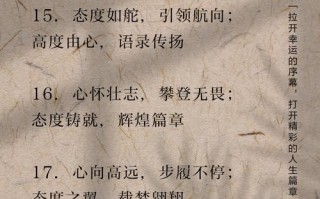 15. 态度如舵，引领航向；
高度由心，语录传扬
16. 心怀壮志，攀登无畏；
态度铸就，辉煌篇章
17. 心向高远，步履不停；
态度之翼，载梦翱翔
拉开幸运的序幕，打开精彩的人生篇章